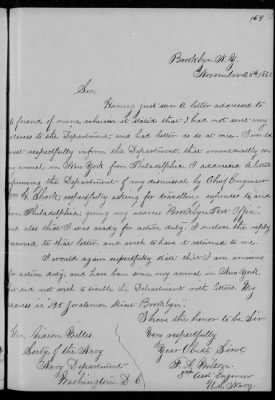 169
Brooklyn N.Y.
November 25th 186
Sir
Having just seen a letter addressed to
a friend of mine wherein it stated that I had not sent my
address to the Department, and had better do so at once. I would
most respectfully inform the Department, that immediately on
my arrival in New York from Philadelphia, I addressed a letter
informing the Department of my dismissal by Chief Engineer
Wm H. Shock; respectfully asking for travelling expenses to and
from Philadelphia; giving my address Brooklyn Post Office;
and also that I was ready for active duty. I enclose the reply
received to that letter, and wish to have it returned to me.
I would again respectfully state that I am anxious
for active duty, and have been since my arrival in New York,
but did not wish to trouble the Department with letters. My
address is 185 Street Brooklyn.
I have the honor to be Sir
Very respectfully
Your Obdt. Servt
F. A. Wilson
3rd Asst Engineer
U.S. Navy.
Hon. Gideon Welles
Secty of the Navy
Navy Department
Washington D.C.